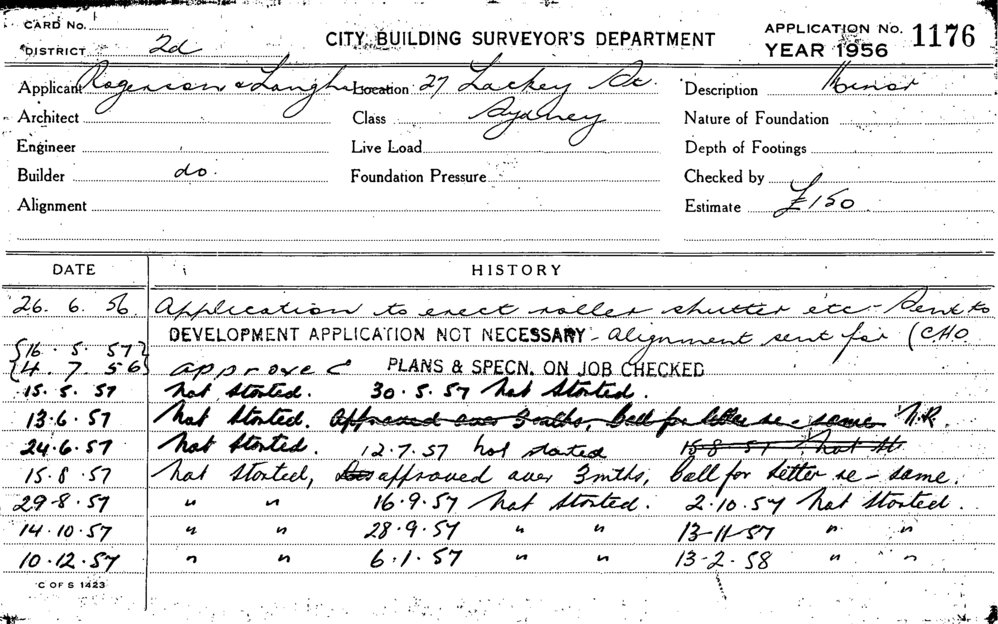 CARD No.
DISTRICT 2d
CITY BUILDING SURVEYOR'S DEPARTMENT
APPLICATION No. 1176
YEAR 1956
Applicant Rogerson & Langham Location 27 Lackey St. Description Minor
Architect Class Sydney Nature of Foundation
Engineer Live Load Depth of Footings
Builder do. Foundation Pressure Checked by
Alignment Estimate £150
DATE HISTORY
26. 6. 56 Application to erect roller shutter etc - Sent to
DEVELOPMENT APPLICATION NOT NECESSARY - Alignment sent for (C.H.O.
{16. 5. 57}
{4. 7. 56} approved PLANS & SPECN. ON JOB CHECKED
15. 5. 57 Not started. 30. 5. 57 Not started.
13.6.57 Not started. Approved over 3 mths, Call for letter re - same N.R.
24.6.57 Not started. 12.7.57 not started 15.8.57 Not st
15.8.57 Not started, approved over 3 mths, Call for letter re - same.
29-8.57 " " 16.9.57 Not started. 2.10.57 Not started.
14.10.57 " " 28.9.57 " " 13-11-57 " "
10.12.57 " " 6.1.57 " " 13-2.58 " "
C OF S 1423